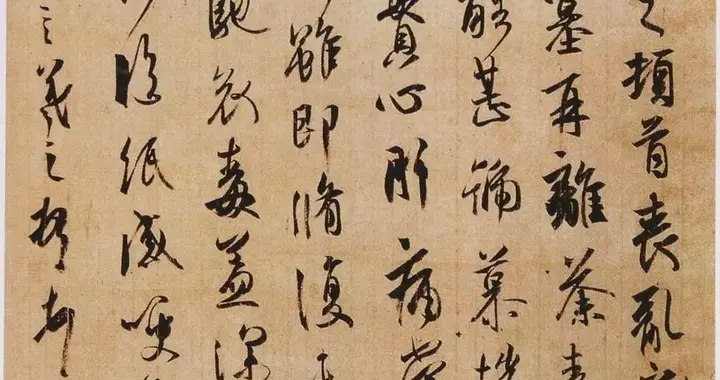 之頓首喪亂
墓再離荼毒
酷甚號慕摧
貫心肝痛當
雖即脩復未
馳哀毒益深
臨紙感哽
言羲之頓首